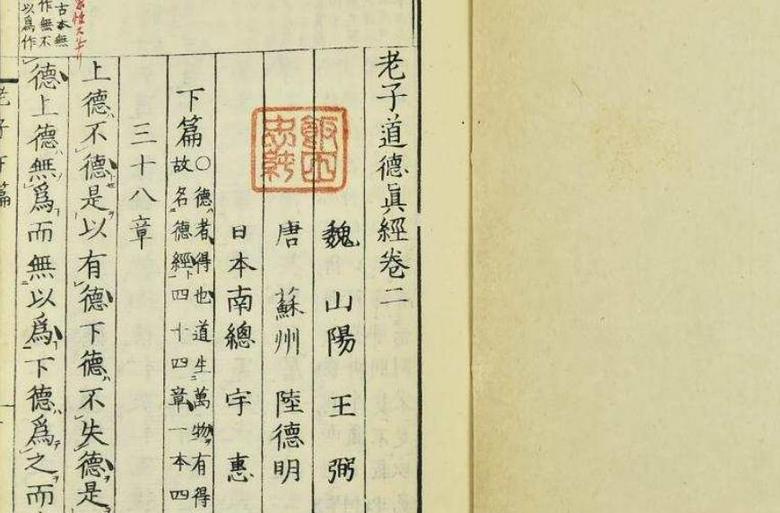 老子道德眞經卷二
魏 山陽 王弼
唐 蘇州 陸德明
日本南總 宇惠
下篇〇德者得也道生萬物有得
故名德經四十四章一本四
三十八章
上德不德是以有德下德不失德是
德上德無爲而無以爲下德爲之而
古本無
作無不
以爲作
老子下篇